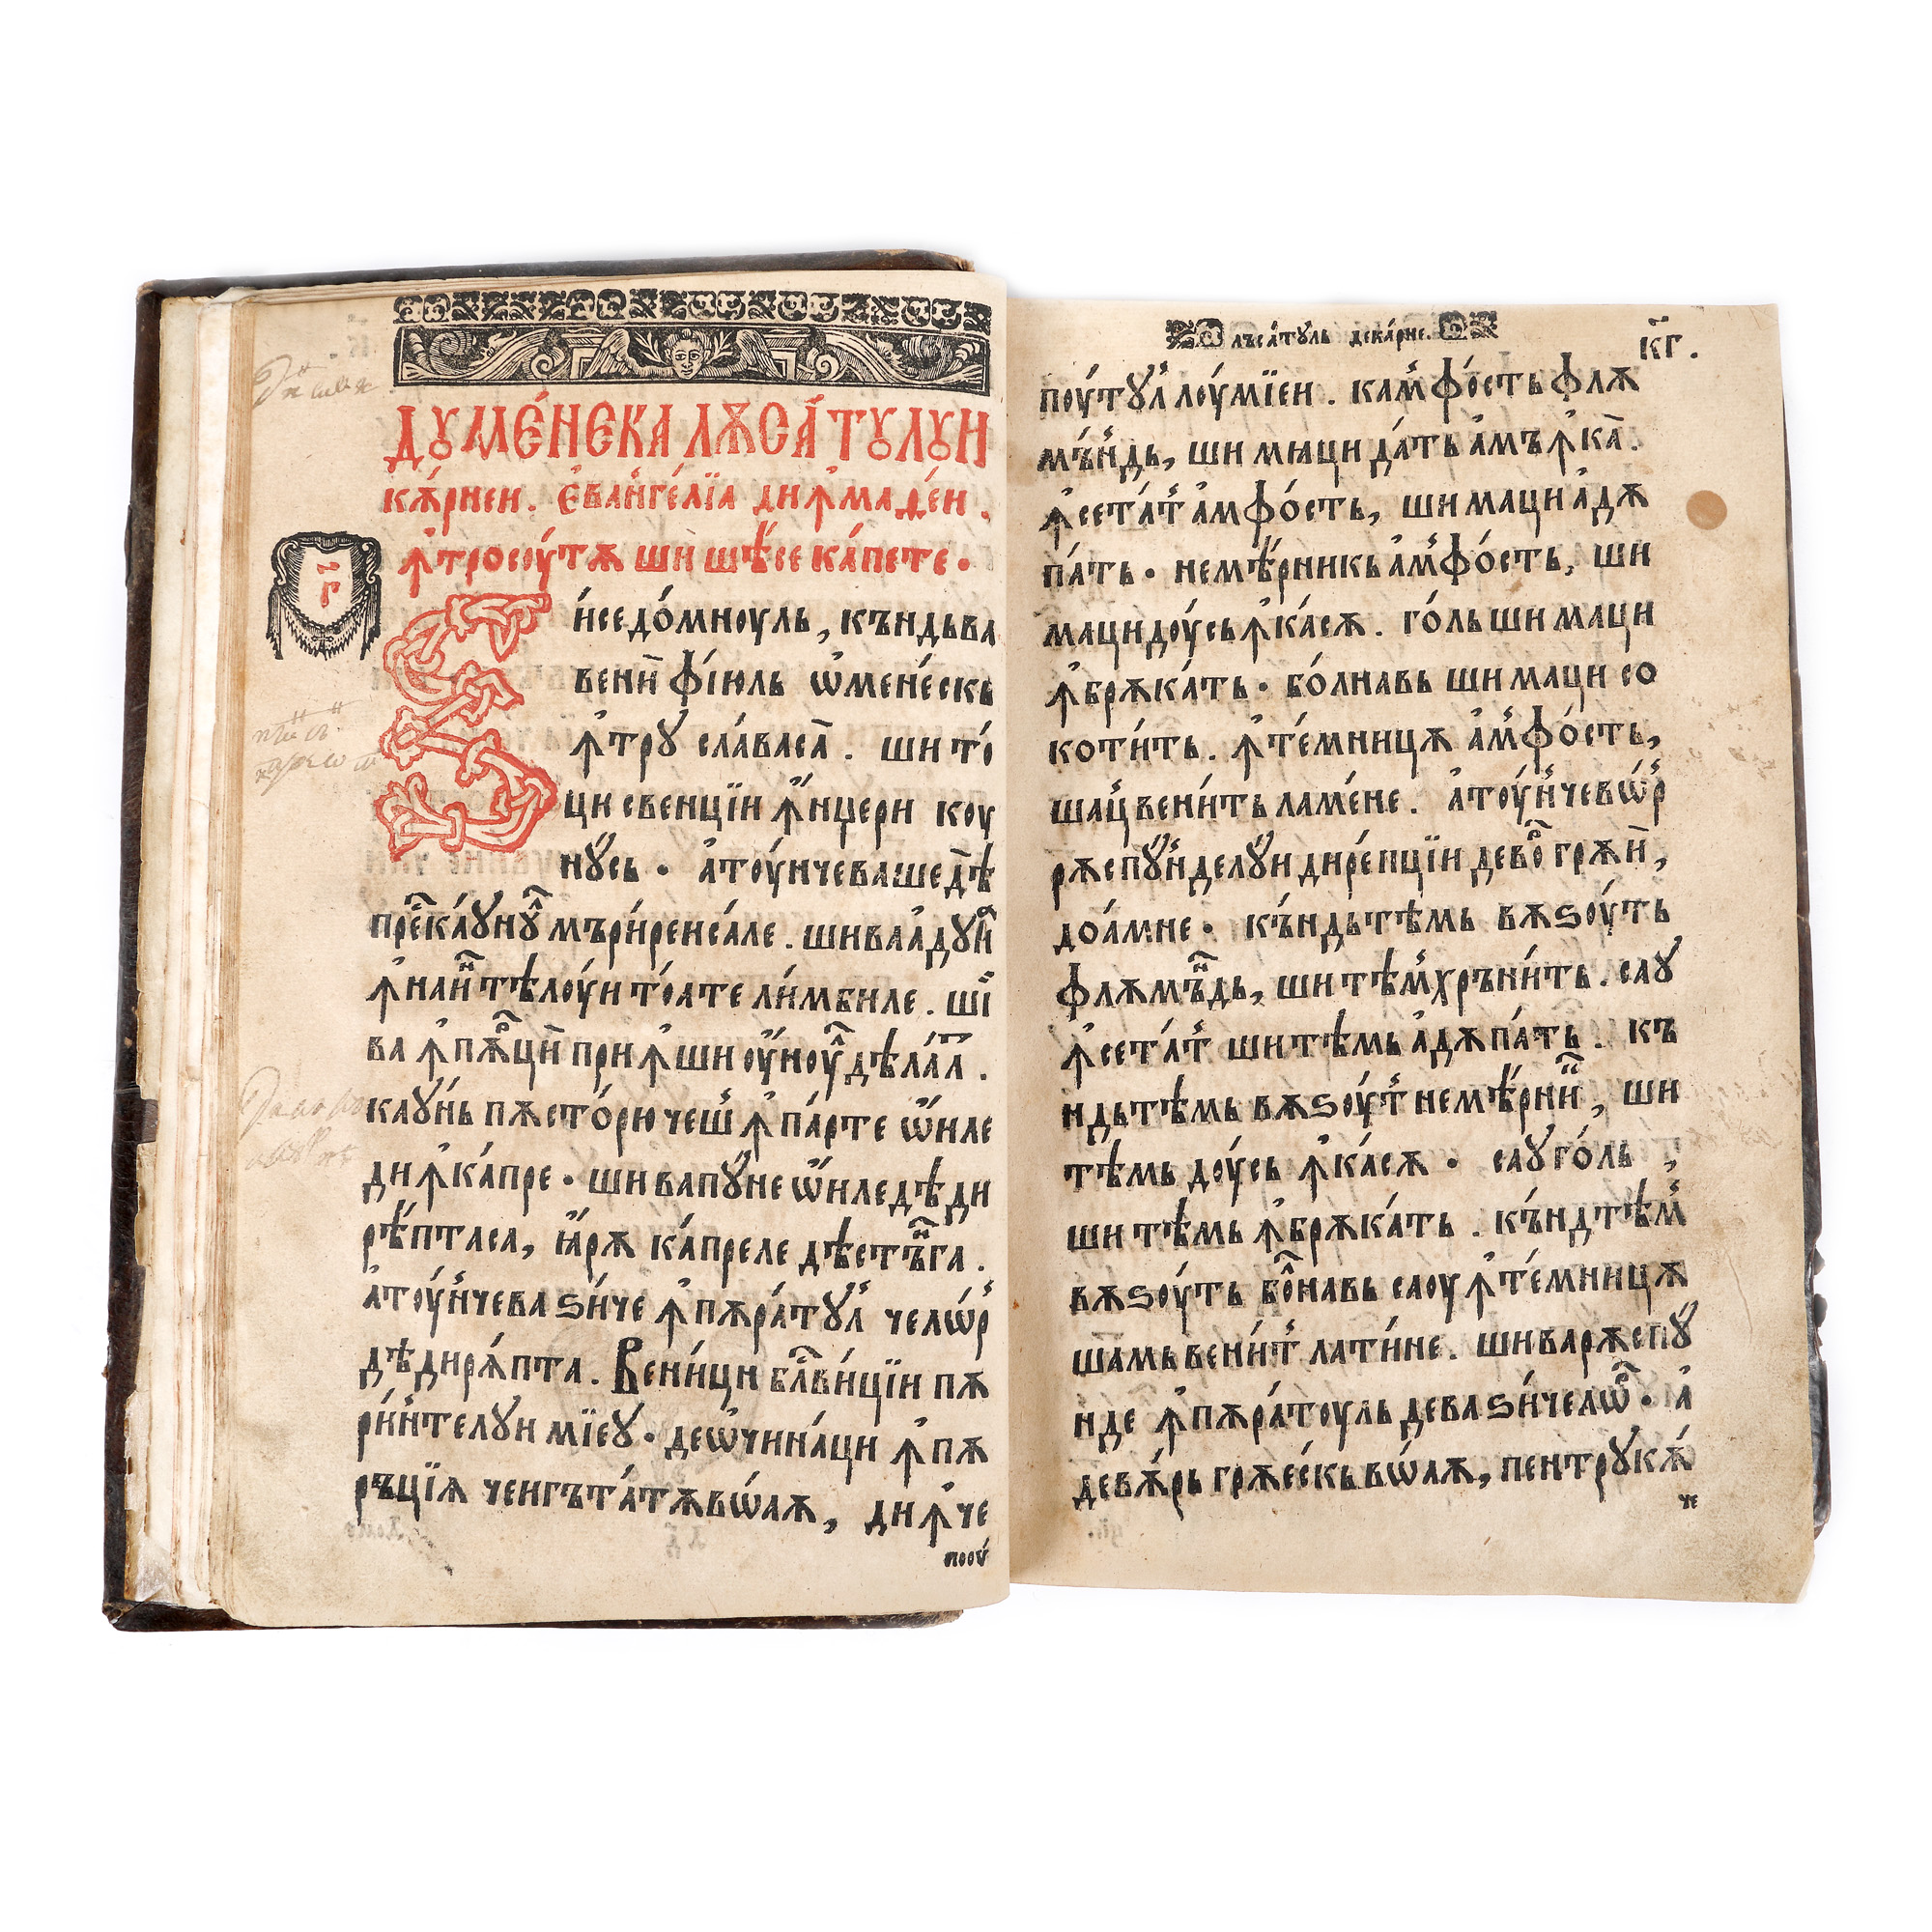 ДꙋМЕ́НЕКА ЛѪСА́ТꙋЛꙋИ
кѫ́рнеи. Є҆ва́нгелїа диꙟ҆маѳе́и.
ꙟ҆тросоу́тѫ ши шѣ́се ка́пете·
г҃і
Ѕи́се до́мноуль, къндьва
вени̑ фі́юль ѡ҆мене́скь
ꙟ҆трꙋ̀ сла́васа̀. ши то́
ци свенцїи ꙟ҆́нџери коу
нꙋ́сь· а҆тоу́нчева шедѣ̀
пре҆ска́ꙋнꙋл мъри́реисале. шива а҆дꙋ́н
ꙟ҆наи́нтѣлоуи то́ате ли́мбиле. ши̑
ва ꙟ҆пѫрци̑ при ꙟ҆ши оу҆́ноул дѣла́лл.
каꙋ́нь пѫсто́рю чеш ꙟ҆па́рте ѡ҆́иле
ди ꙟ҆ка́пре· ши вапꙋ́не ѡ҆́иле дѣди
рѣ́птаса, ꙗ҆́рѫ ка́преле дѣстъ́нга.
а҆тоу́нчева ѕи́че ꙟ҆пѫра́тꙋл челѡ́р
дѣдирѧ́пта. Вени́ци бл҃ви́нцїи пѫ
ри́нтелꙋи мїеꙋ̀· деѡ҆чина́ци ꙟ҆пѫ
ръцїѧ чеигъта́тѫ вѡ́аѫ, ди ꙟ҆че
пооу́
лъса́тꙋль дека́рне.
к҃г.
поу́тꙋл лоу́мїеи. кам фо́сть флѫ
мъ́ндь, ши мꙗци да́ть а҆мъ ꙟ҆ка̀.
ꙟ҆сета́т а҆мфо́сть, ши маци а҆дѫ
па́ть· немѣ́рникь а҆мфо́сть, ши
маци доу́сь ꙟ҆ка́сѫ. го́ль ши маци
ꙟ҆брѫка́ть· бо́лнавь ши маци со
коти́ть. ꙟ҆те́мницѫ а҆мфо́сть,
шац вени́ть ламе́не. а҆тоу́нчевѡ́р
рѫспꙋ́нделꙋи дире́пцїи дево̑р грѫи̑,
доа́мне· къ́ндьтѣмь вѫѕоу́ть
флѫмъ́ндь, ши тѣмхръни́ть. саꙋ
ꙟ҆сета́т ши тѣмь а҆дѫпа́ть. къ
ндьтѣмь вѫѕоу́т немѣ́рни̑к, ши
тѣмь доу́сь ꙟ҆ка́сѫ· саꙋ го́ль,
ши тѣмь ꙟ҆брѫка́ть. къндтѣм
вѫѕоу́ть бо̑лнавь саоу ꙟ҆те́мницѫ
ша̀мь вени́т лати́не. ши варѫспꙋ
нде ꙟ҆пѫра́тоуль дева ѕи́челѡ̑р· а҆
девѫ́рь грѫе́скь вѡ́аѫ, пентрꙋкѫ́
че